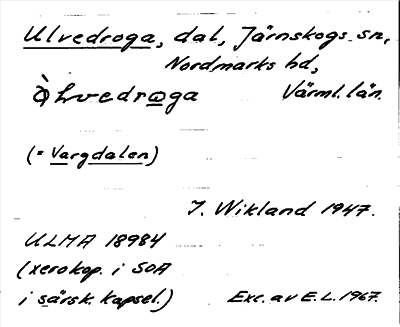 Ulvedroga, dal, Järnskogs sn,
Nordmarks hd,
Värml. län.
(= Vargdalen)
J. Wikland 1947.
ULMA 18984
(xerokop. i SOA
i särsk. kapsel.)
Exc. av E.L. 1967.